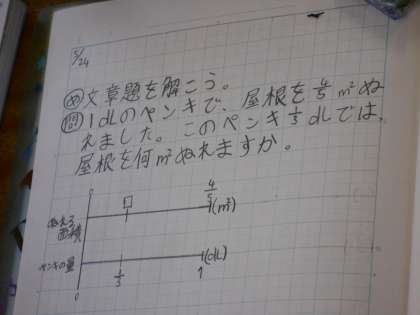 5/24
め 文章題を解こう。
問 1dLのペンキで、屋根を4/5m²ぬ
れました。このペンキ1/3dLでは、
屋根を何m²ぬれますか。
0 □ 4/5
ぬれる面積 (m²)
ペンキの量 (dL)
0 1/3 1